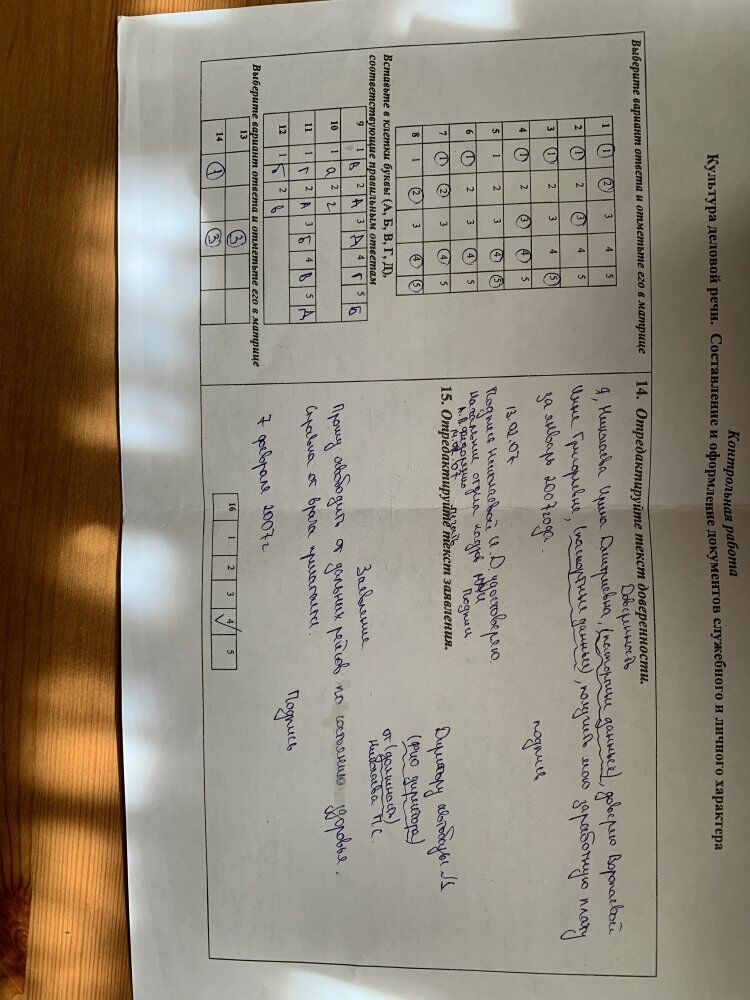 Контрольная работа
Культура деловой речи. Составление и оформление документов служебного и личного характера
Выберите вариант ответа и отметьте его в матрице
1 1 2 3 4 5
2 1 2 3 4 5
3 1 2 3 4 5
4 1 2 3 4 5
5 1 2 3 4 5
6 1 2 3 4 5
7 1 2 3 4 5
8 1 2 3 4 5
Вставьте в клетки буквы (А, Б, В, Г, Д),
соответствующие правильным ответам
9 1 В 2 А 3 Д 4 Г 5 Б
10 1 а 2 г
11 1 Г 2 А 3 Б 4 В 5 Д
12 1 Б 2 В
Выберите вариант ответа и отметьте его в матрице
13 3
14 1 3
14. Отредактируйте текст доверенности.
Доверенность
Я, Николаева Ирина Дмитриевна, (паспортные данные), доверяю Воропаевой
Инне Григорьевне, (паспортные данные), получить мою заработную плату
за январь 2007 года.
13.02.07 подпись
Подпись Николаевой И.Д удостоверяю
Начальник отдела кадров
Подпись
14.02.07 печать
15. Отредактируйте текст заявления.
Директору автобазы №1
(фио директора)
от (должность)
Николаева П.С.
Заявление
Прошу освободить от дальних рейсов по состоянию здоровья.
Справка от врача прилагается.
7 февраля 2007 г Подпись
16 1 2 3 4 5